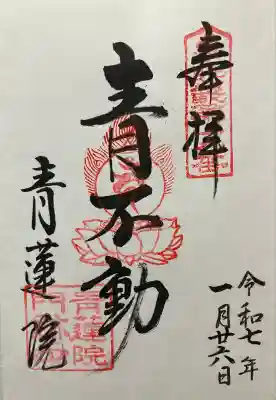 奉拝
青不動
青蓮院
令和七年
一月廿六日
青蓮院